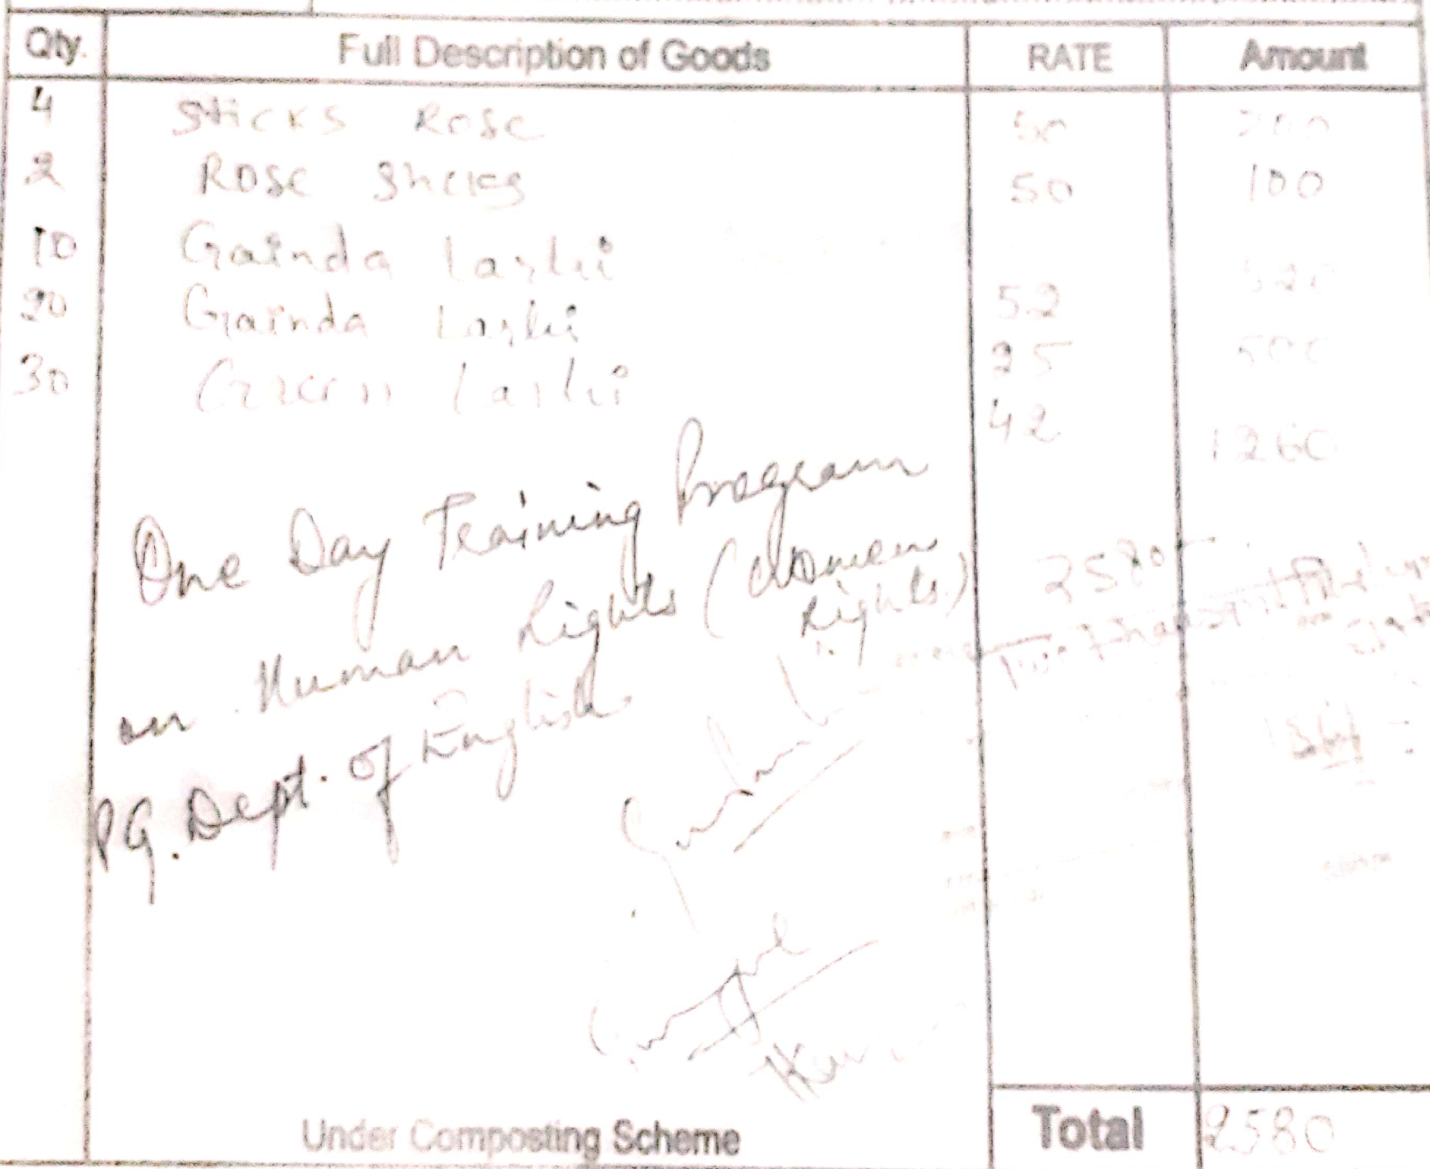 Qty. Full Description of Goods RATE Amount
4 Sticks Rose 50 200
2 Rose Sticks 50 100
10 Gainda Lashi 52 520
20 Gainda Lashi 25 500
30 Green Lashi 42 1260
One Day Training Program
on Human Rights (Women
Rights)
2580
PG. Dept. of English
Under Composting Scheme
Total 2580